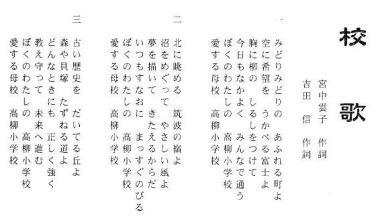 校歌
宮中雲子 作詞
吉田 信 作詞
一
みどりみどりの あふれる町よ
空に希望を うかべる富士よ
胸に柳の しるしをつけて
今日もなかよく みんなで通う
ぼくのわたしの 高柳小学校
愛する母校 高柳小学校
二
北に眺める 筑波の嶺よ
沼をめぐって やさしい風よ
夢を描いて きたえるからだ
いつもすなおに まっすぐのびる
ぼくのわたしの 高柳小学校
愛する母校 高柳小学校
三
古い歴史を だいてる丘よ
森や貝塚 たずねる道よ
どんなときにも 正しく強く
教え守って 未来へ進む
ぼくのわたしの 高柳小学校
愛する母校 高柳小学校